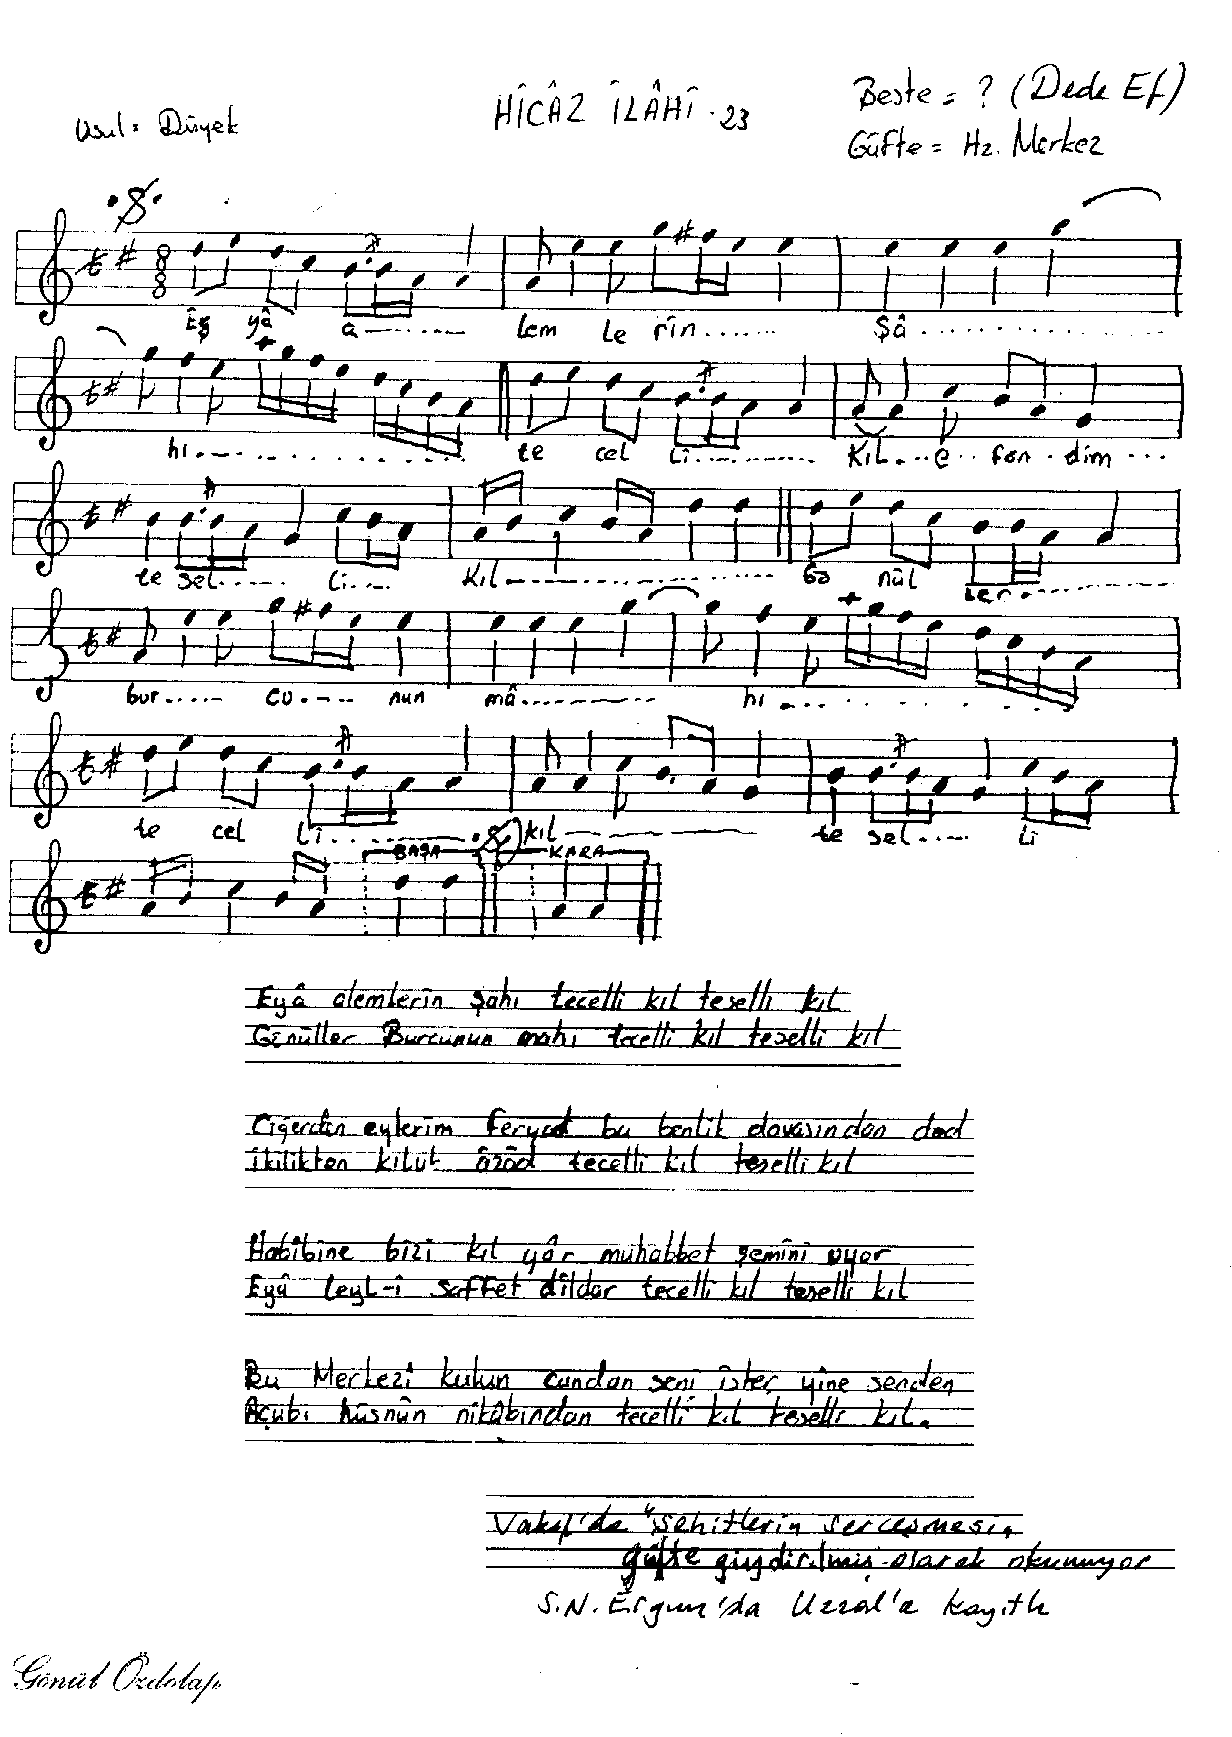 HİCÂZ İLÂHÎ . 23
Beste = ? (Dede Ef)
Usul = Düyek
Güfte = Hz. Merkez
8
8
Ey yâ a lem le rin Şâ
hı te cel li Kıl e fen dim
te sel li Kıl Gö nül ler
bur cu nun mâ hı
te cel li kıl te sel li
BAŞA KARA
Eyâ alemlerin Şahı tecelli kıl teselli kıl
Gönüller Burcunun mahı tecelli kıl teselli kıl
Ciğerden eylerim feryad bu benlik davasından dad
İkilikten kılub âzâd tecelli kıl teselli kıl
Habîbine bizi kıl yâr muhabbet şemîni uyar
Eyâ Leyl-i saffet dîldar tecelli kıl teselli kıl
Bu Merkezî kulun candan seni ister yine senden
Açubı hüsnün nikâbından tecelli kıl teselli kıl.
Vakıf'da "Şehitlerin serçeşmesi"
güfte giydirilmiş olarak okunuyor
S.N. Ergun'da Uzzal'a kayıtlı
Gönül Özdolap